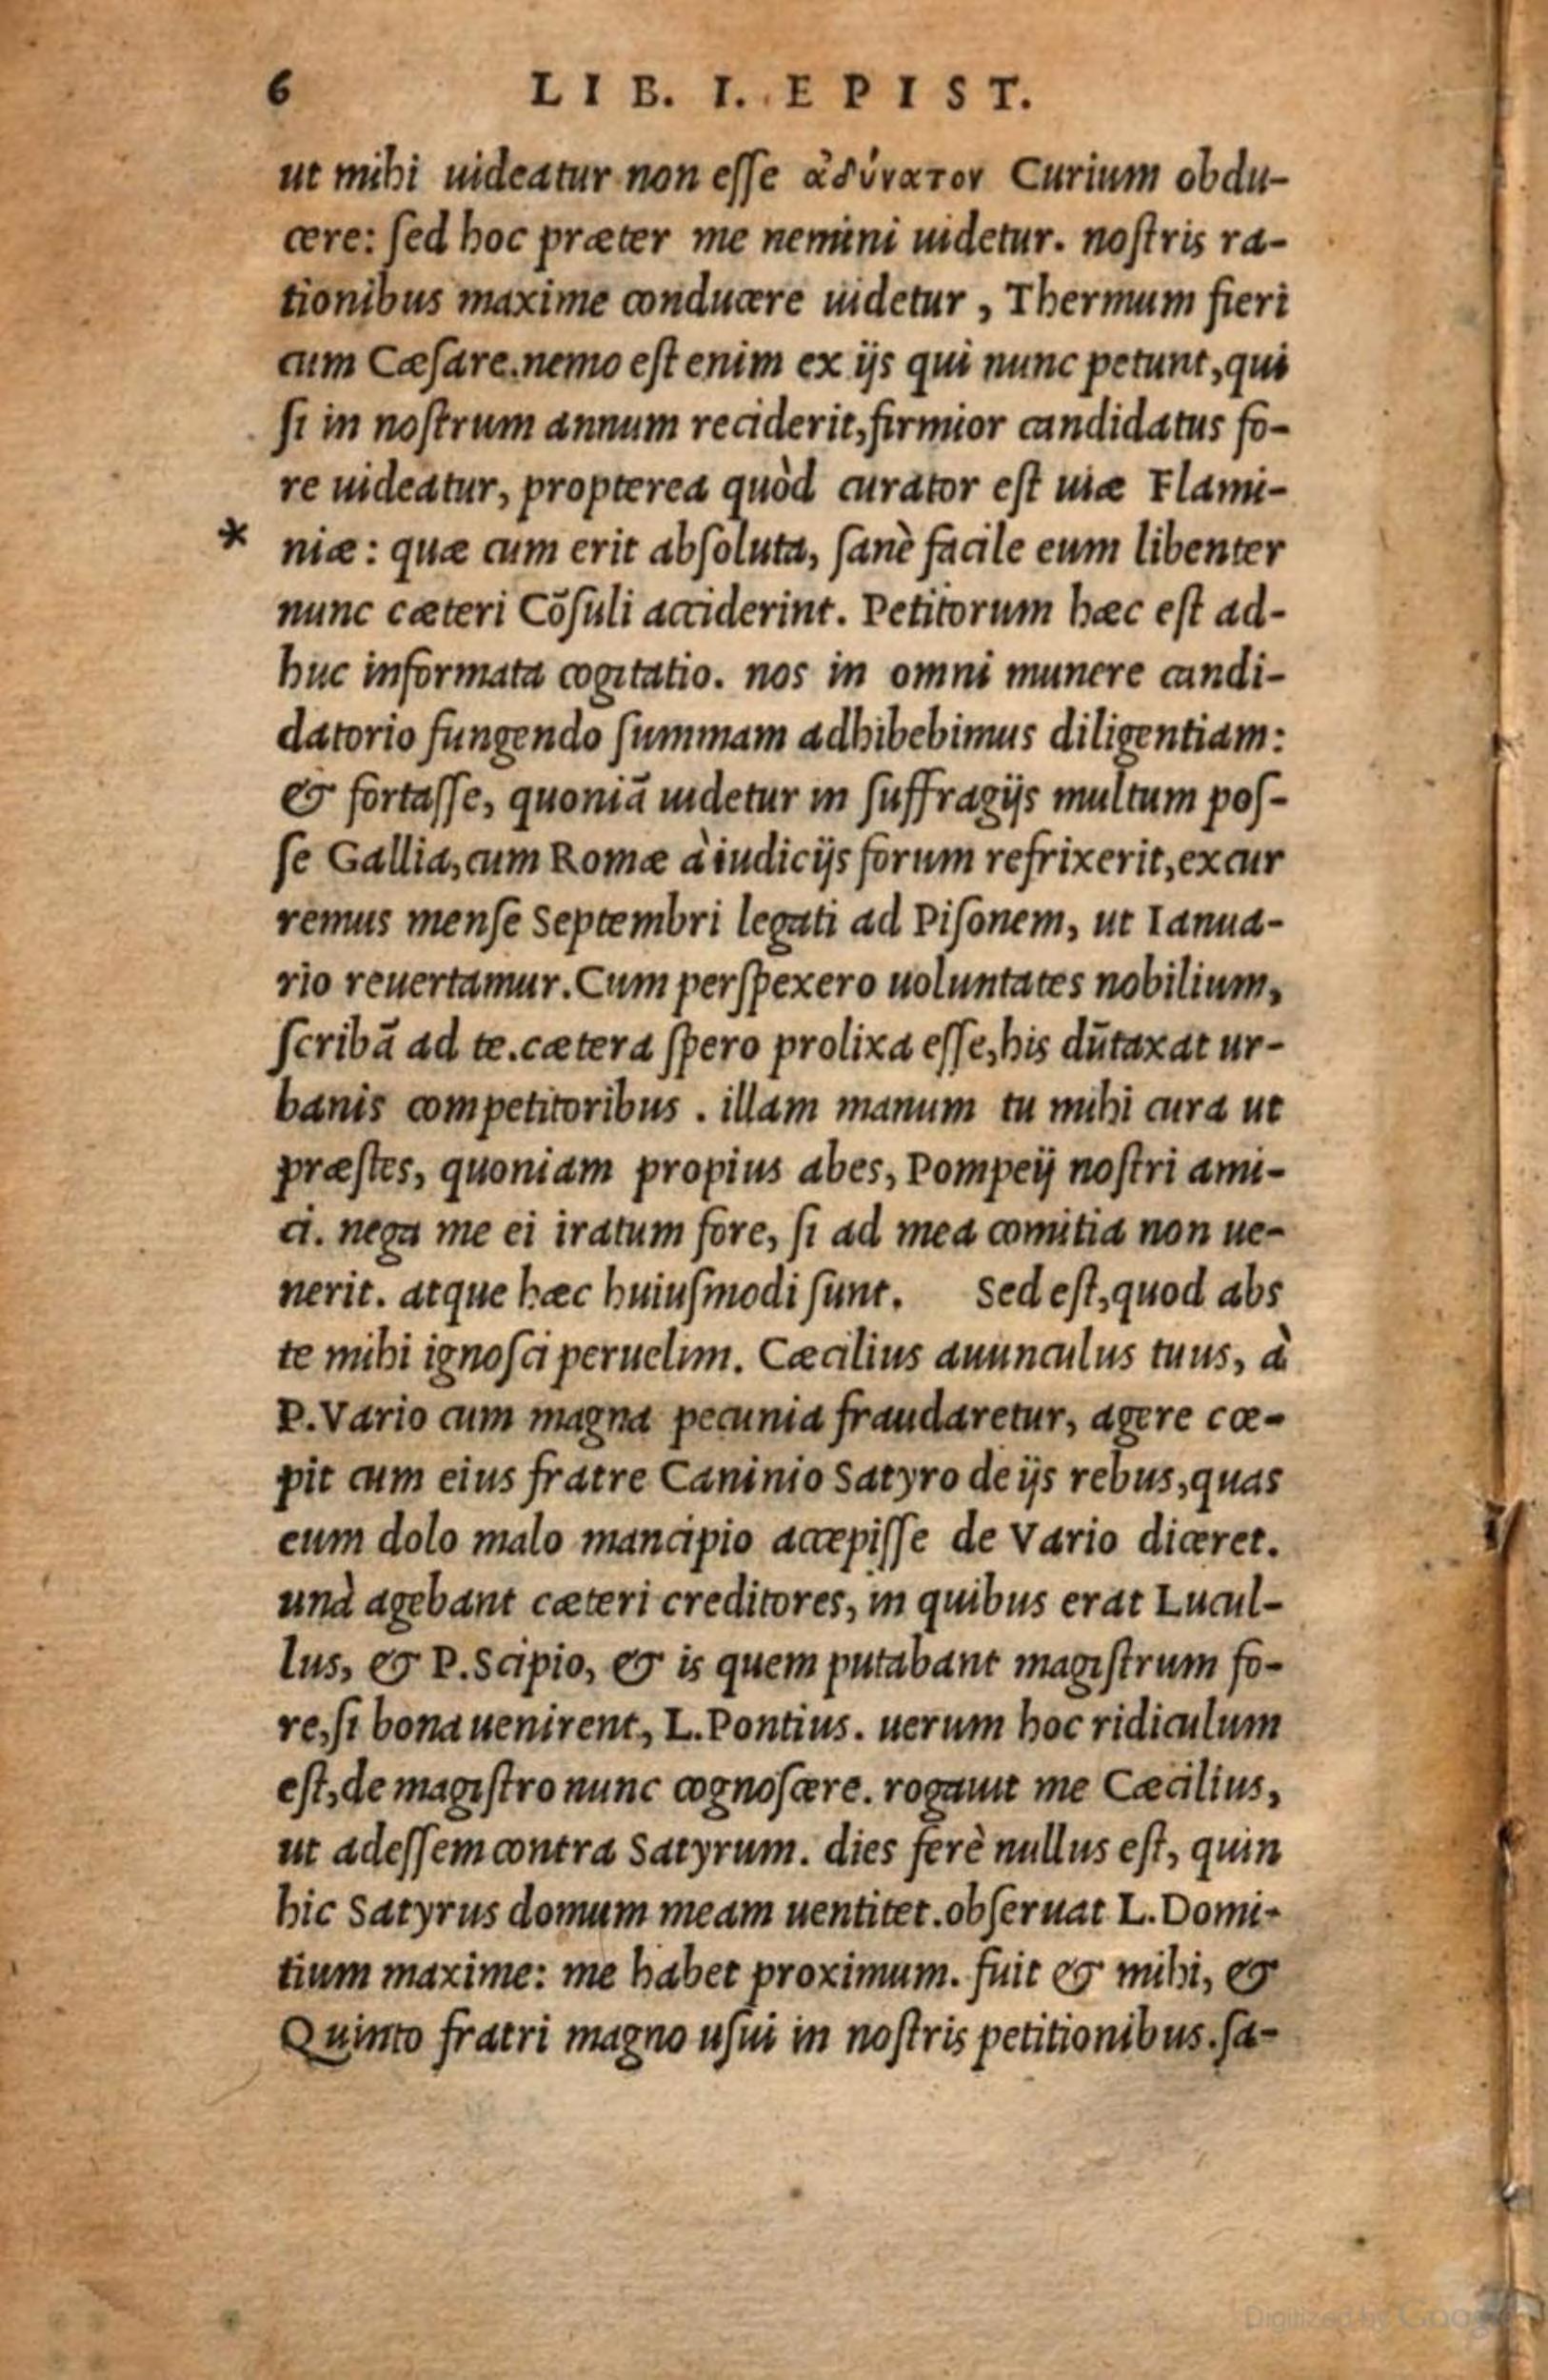 6 LIB. I. EPIST.
ut mihi uideatur non eſſe ἀδύνατον Curium obdu-
cere: ſed hoc præter me nemini uidetur. noſtris ra-
tionibus maxime conducere uidetur, Thermum fieri
cum Cæſare. nemo eſt enim ex ijs qui nunc petunt, qui
ſi in noſtrum annum reciderit, firmior candidatus fo-
re uideatur, propterea quòd curator eſt uiæ Flami-
* niæ: quæ cum erit abſoluta, ſanè facile eum libenter
nunc cæteri Cõſuli acciderint. Petitorum hæc eſt ad-
huc informata cogitatio. nos in omni munere candi-
datorio fungendo ſummam adhibebimus diligentiam:
& fortaſſe, quoniã uidetur in ſuffragijs multum poſ-
ſe Gallia, cum Romæ à iudicijs forum refrixerit, excur
remus menſe Septembri legati ad Piſonem, ut Ianua-
rio reuertamur. Cum perſpexero uoluntates nobilium,
ſcribã ad te. cætera ſpero prolixa eſſe, his dũtaxat ur-
banis competitoribus. illam manum tu mihi cura ut
præſtes, quoniam propius abes, Pompeij noſtri ami-
ci. nega me ei iratum fore, ſi ad mea comitia non ue-
nerit. atque hæc huiuſmodi ſunt. Sed eſt, quod abs
te mihi ignoſci peruelim. Cæcilius auunculus tuus, à
P. Vario cum magna pecunia fraudaretur, agere cœ-
pit cum eius fratre Caninio Satyro de ijs rebus, quas
eum dolo malo mancipio accepiſſe de Vario diceret.
unà agebant cæteri creditores, in quibus erat Lucul-
lus, & P. Scipio, & is quem putabant magiſtrum fo-
re, ſi bona uenirent, L. Pontius. uerum hoc ridiculum
eſt, de magiſtro nunc cognoſcere. rogauit me Cæcilius,
ut adeſſem contra Satyrum. dies ferè nullus eſt, quin
hic Satyrus domum meam uentitet. obſeruat L. Domi-
tium maxime: me habet proximum. fuit & mihi, &
Quinto fratri magno uſui in noſtris petitionibus. ſa-
Digitized by Google